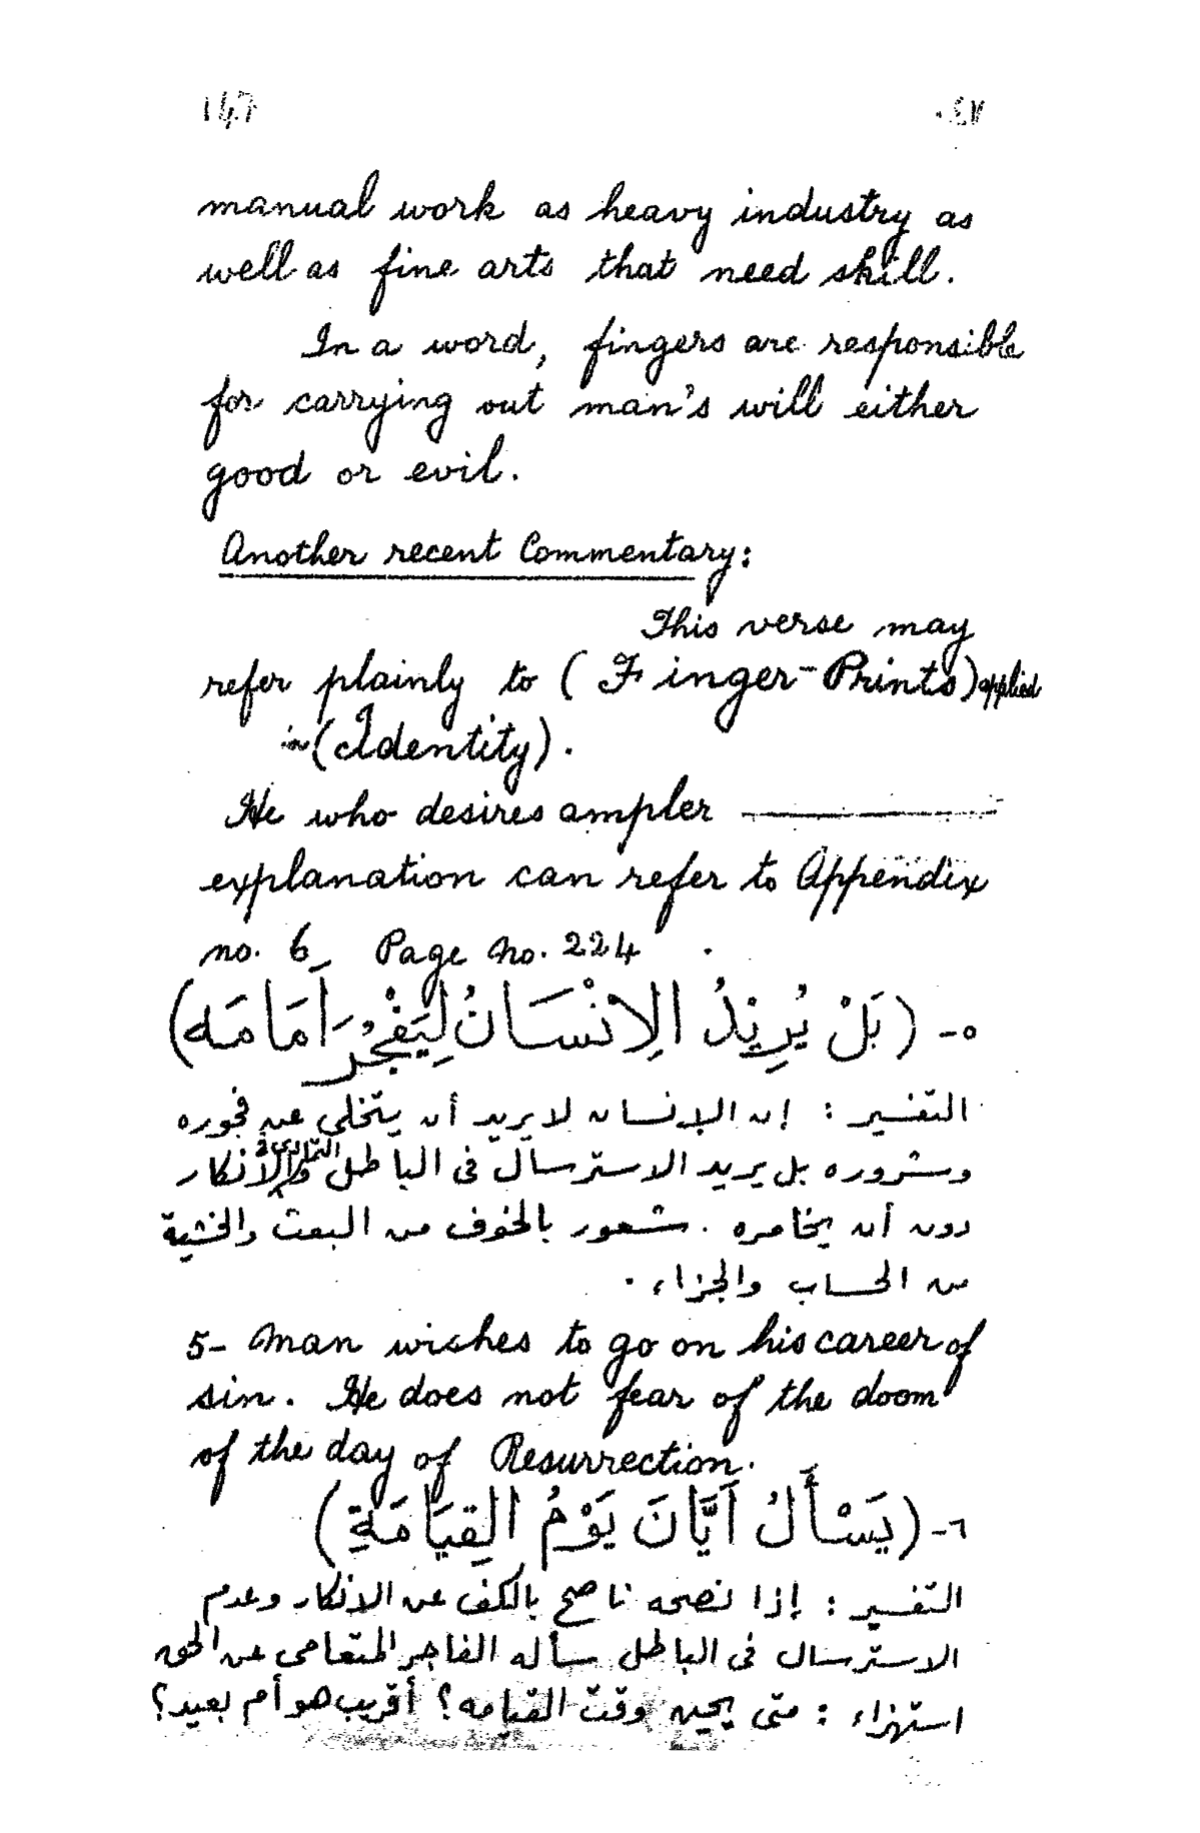 147
manual work as heavy industry as
well as fine arts that need skill.
In a word, fingers are responsible
for carrying out man's will either
good or evil.
Another recent Commentary:
This verse may
refer plainly to (Finger-Prints) applied
in (Identity).
He who desires ampler
explanation can refer to Appendix
no. 6, Page no. 224
٥- (بَلْ يُرِيْدُ الِانْسَانُ لِيَفْجُرَ أَمَامَه)
التفسير : إن الإنسان لا يريد أن يتخلى عن فجوره
وشروره بل يريد الاسترسال فى الباطل والتمادى فى الانكار
دون أن يخامره شعور بالخوف من البعث والخشية
من الحساب والجزاء .
5- Man wishes to go on his career of
sin. He does not fear of the doom
of the day of Resurrection.
٦- (يَسْأَلُ اَيَّانَ يَوْمُ القِيَامَةِ)
التفسير : إذا نصحه ناصح بالكف عن الانكار وعدم
الاسترسال فى الباطل سأله الفاجر المتعامى عن الحق
استهزاء : متى يحين وقت القيامه؟ أقريب هو أم بعيد؟